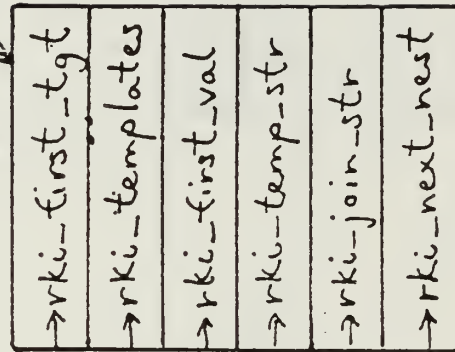 →rki_first_tgt
→rki_templates
→rki_first_val
→rki_temp_str
→rki_join_str
→rki_next_nest